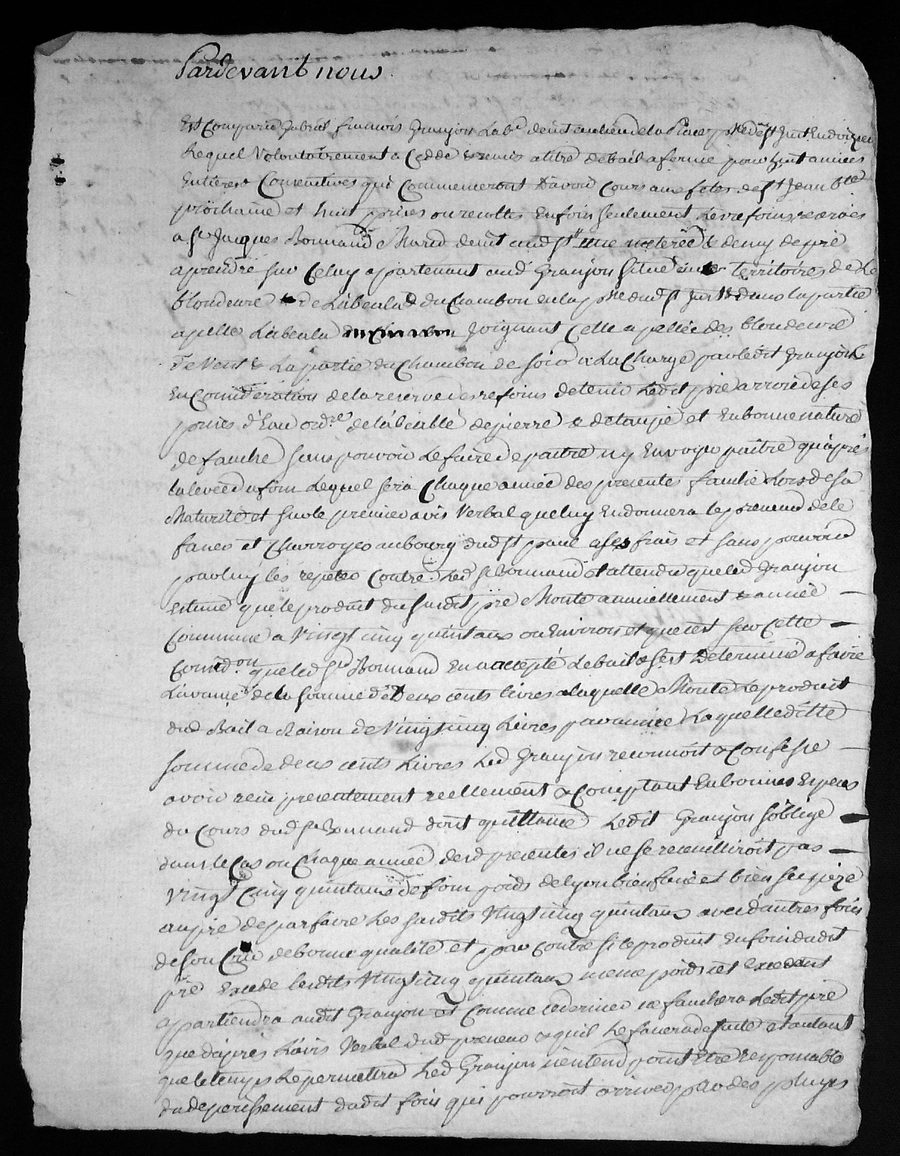 Pardevant nous
Est Comparu François Granjon Lab.r demt au lieu de la
Lequel Volontairement a Cedde & remis a titre de bail a ferme pour huit années
Entieres Consentives qui Commenceront d'avoir Cours aux fetes de St Jean Bte
prochaine et huit prises ou recoltes En foin seulement
a Sr Jacques Bonnand Mard demt aud St une meterée & demy de pré
a prendre sur Celuy appartenant aud Granjon Situé territoires de
blondeure & de Labeala du Chambon en la psse dud St dans la partie
apellée Labeala Joignant Celle apellée des blondeure
de vent & La partie du Chambon de soir a La Charge par ledit Granjon
En Consideration de la reserve des refoins de tenir Ledit pré arrosé de ses
prises d'Eau ord.res de pierre & de taupe et En bonne nature
de fauche sans pouvoir Le faire depaitre ny Envoyer paitre qu'après
la levée du foin Lequel sera Chaque année des presentes fauché Lors de sa
Maturité et sur le premier avis Verbal que luy En donnera le preneur
faner et Charroyer au bourg dud St paul a ses frais et sans pouvoir
par luy les repeter Contre Led Sr Bonnand Et attendu que led Granjon
Estime que le produit du susdit pré Monte annuellement & année
Commune a Vingt cinq quintaux ou Environ et que c'est sur Cette
Consid.on que led Sr Bonnand En a accepté Le bail & s'est Determiné a faire
L'avance de la somme de Deux cents livres a laquelle Monte Le produit
dud Bail a Raison de Vingt cinq Livres par année Laquelle ditte
somme de deux cents Livres Led Granjon reconnoit & Confesse
avoir reçu presentement reellement & Comptant En bonnes Especes
du Cours dud Sr Bonnand dont quittance Ledit Granjon s'oblige
dans le Cas ou Chaque année desd presentes il ne se recueilliroit pas
Vingt Cinq quintaux de foin poids de lyon bien fané et bien
au pré de parfaire Les susdits Vingt cinq quintaux avec d'autres foins
de son Cru de bonne qualité et par contre si le produit En foin dudit
pré Excede lesdits Vingt cinq quintaux meme poids cet Excedent
apartiendra audit Granjon Et Comme ce dernier ne fauchera Ledit pré
que d'après L'avis Verbal dud preneur & qu'il Le fanera de suite & autant
que le temps Le permettra Led Granjon n'entend point Etre responsable
du deperissement dudit foin qui pourroit arriver par des pluyes